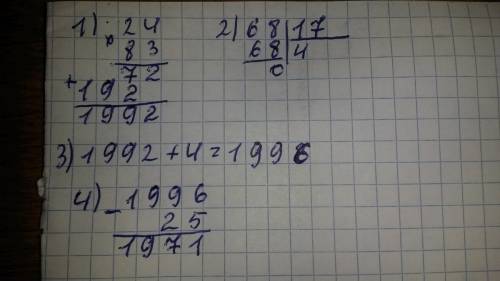 1) × 24 2) 68 | 17
83 68 | 4
72 0
+ 192
1992
3) 1992 + 4 = 1996
4) - 1996
25
1971